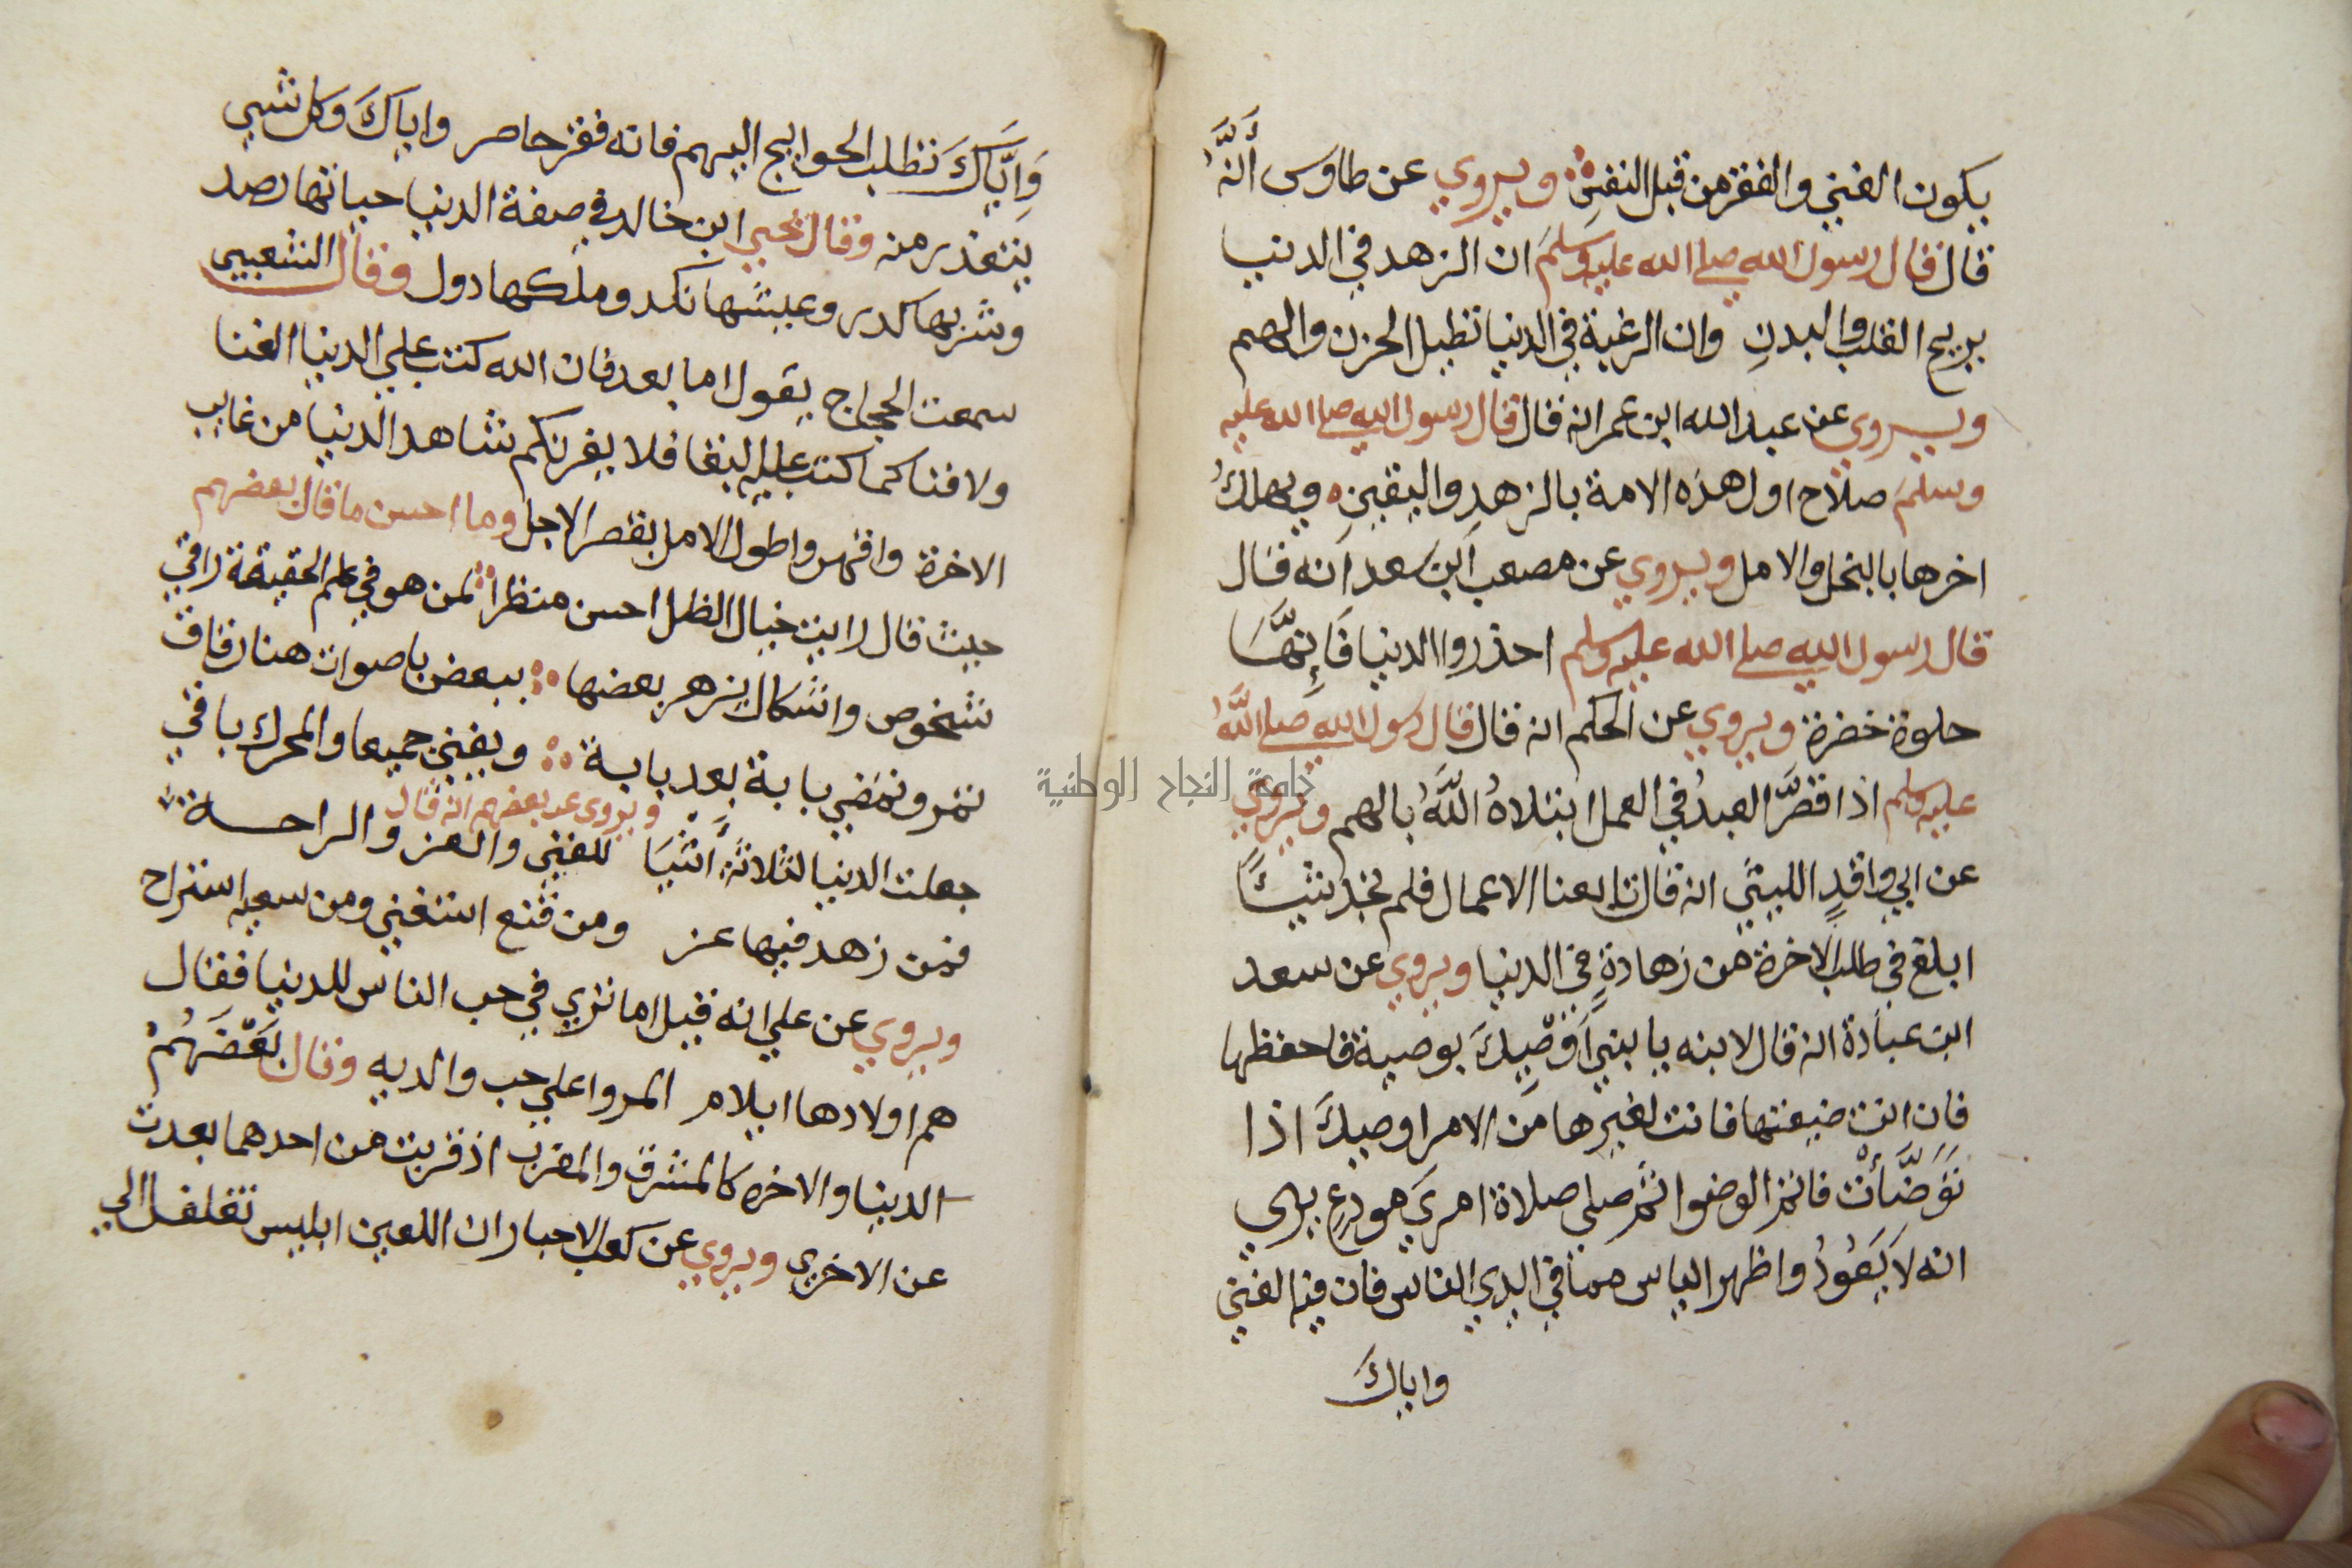 يكون الغني والفقر من قبل النفس ويروي عن طاوس أنَّهُ
قال قال رسول الله صلي الله عليه وسلم ان الزهد في الدنيا
يريح القلب والبدنِ وان الرغبة في الدنيا تطيل الحزن والهم
ويروي عن عبد الله ابن عمر انه قال قال رسول الله صلي الله عليه
وسلم صلاح اول هذه الامة بالزهدِ واليقينِ ويهلكُ
اخرها بالبخل والامل ويروي عن مصعب ابن سعد انه قال
قال رسول الله صلي الله عليه وسلم احذروا الدنيا فَإِنهَّا
حلوة خضرة ويروي عن الحكم انه قال قال رسول الله صلي اللَّهُ
عليه وسلم اذا قصَّر العبدُ في العمل ابتلاهُ اللَّهُ بالهم ويروي
عن ابي واقدٍ الليثي انه قال تابعنا الاعمال فلم نجد شيـًٔا
ابلغ في طلب الاخرة من زهادةٍ في الدنيا ويروي عن سعد
ابن عبادة انه قال لابنه يا بنيَّ أوصِّيكَ بوصية فاحفظها
فان انت ضيعتها فانت لغيرها من الامر اوصيكَ اذا
تَوَضَّأتْ فاتمز الوضوا ثم صلي صلاة امري مودع يري
انه لا يَعُودُ واظهر الياس مما في ايدي الناس فان فيه الغني
واياكَ
وَإِيَّاكَ تطلب الحوايج اليهم فانه فقر حاصر واياكَ وكل شيي
يتعذر منه وقال يحيي ابن خالد في صفة الدنيا حياتها رصد
وشربها كدر وعيشها نكد وملكها دول وقال الشعبيي
سمعت الحجاج يقول اما بعد فان الله كتب علي الدنيا الفنا
ولا فنا كما كتب عليه البقا فلا يغرنكم شاهد الدنيا من غايب
الاخرة واقهروا طول الامل بقصر الاجل وما احسن ما قال بعضهم
حيث قال رايت خيال الظل احسن منظرا لمن هو في علم الحقيقة راقي
شخوص واشكال يزهر بعضها ببعض باصوات هناك رقاق
تمر وتمضي بابة بعد بابة ويفني جميعا والمحرك باقي
ويروي عن بعضهم انه قال
جعلت الدنيا لثلاثةِ أشيَا للغني والعز والراحــة
فمن زهد فيها عز ومن قنع استغني ومن سعيه استراح
ويروي عن علي انه قيل اما تري في حب الناس للدنيا فقال
هم اولادها ايلام المروا علي حب والديه وقال بَعْضَهُمْ
الدنيا والاخره كالمشرق والمغرب اذ قربت من احدهما بعدت
عن الاخري ويروي عن كعب الاحبار ان اللعين ابليس تغلغل الي
جامعة النجاح الوطنية